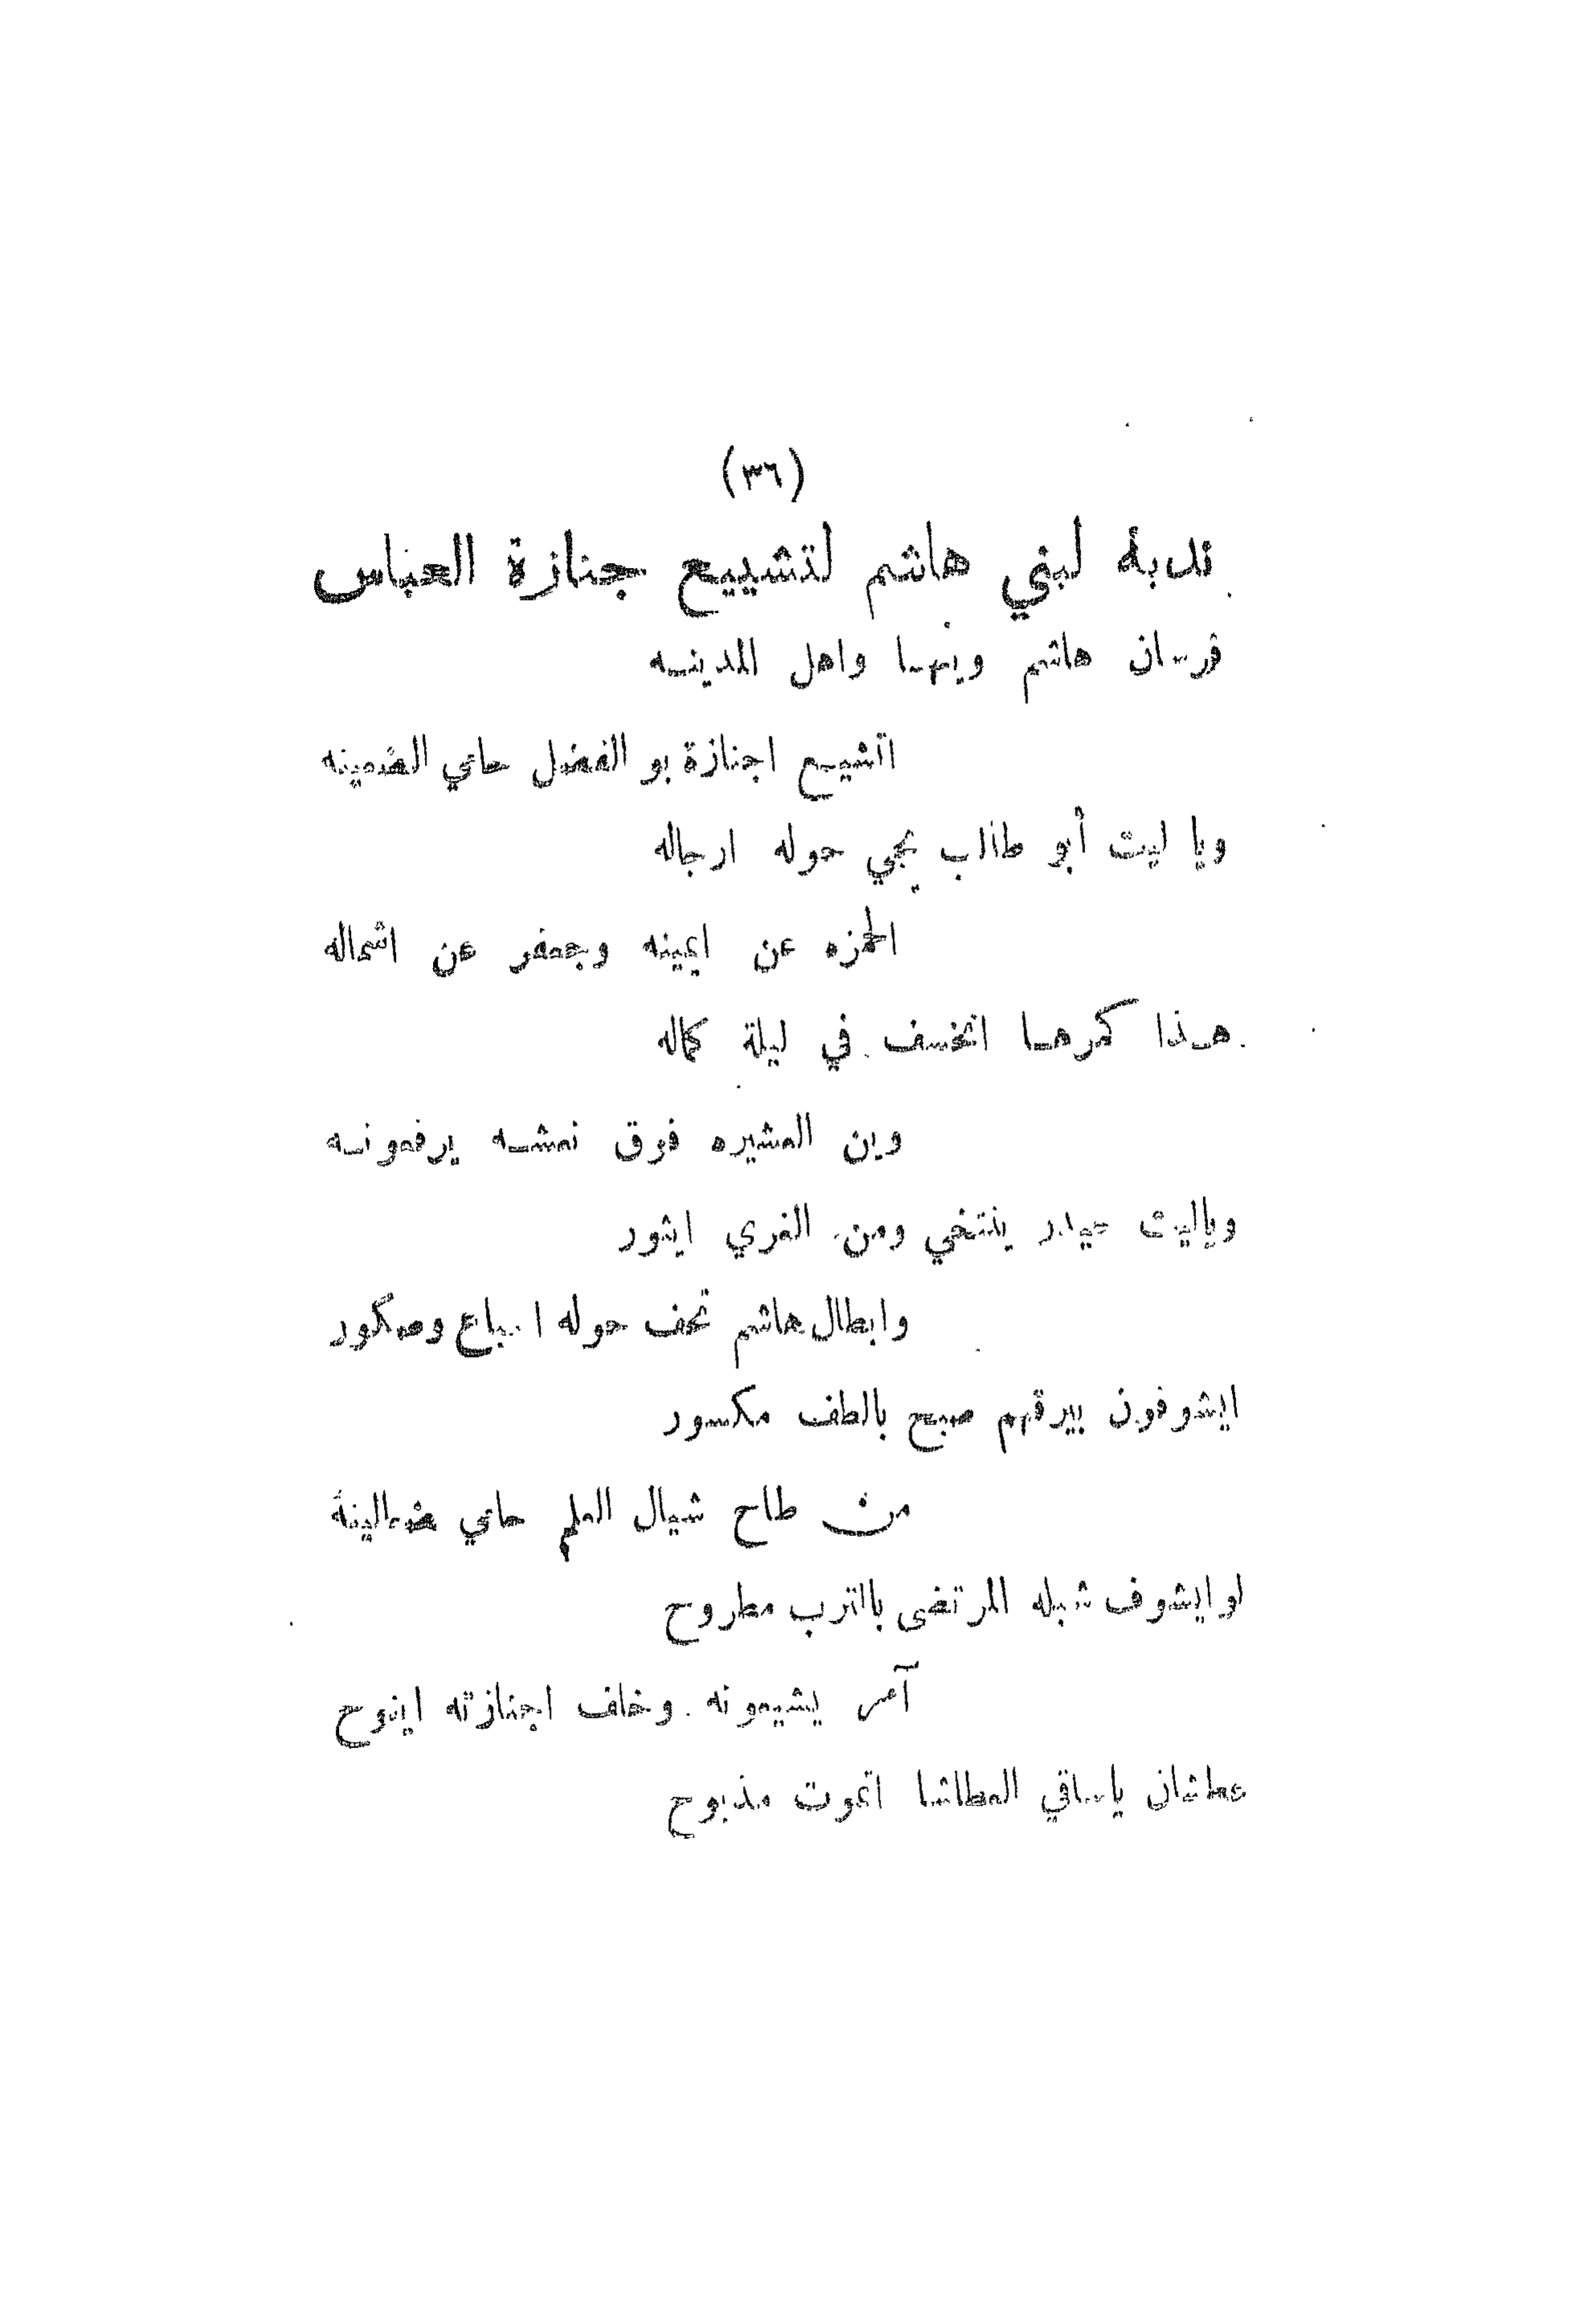 (٣٦)
ندبة لبني هاشم لتشييع جنازة العباس
فرسان هاشم وينهـا واهل المدينـه
اتشييع اجنازة بو الفضل حامي الضعينه
ويا ليت أبو طالب يجي حوله ارجاله
الحمزه عن ايمينه وجعفر عن اشماله
هـذا كمرهـا انخسف في ليلة كماله
وين العشيره فوق نعشـه يرفعونـه
وياليت حيدر ينتخي ومن الغري ايثور
وابطال هاشم تحف حوله اسباع وصكور
ايشوفون بيرقهم صبح بالطف مكسور
من طاح شيال العلم حامي
لو ايشوف شبله المرتضى بالترب مطروح
آمر يشيعونه وخلف اجنازته اينوح
عطشان ياساقي العطاشا اتموت مذبوح